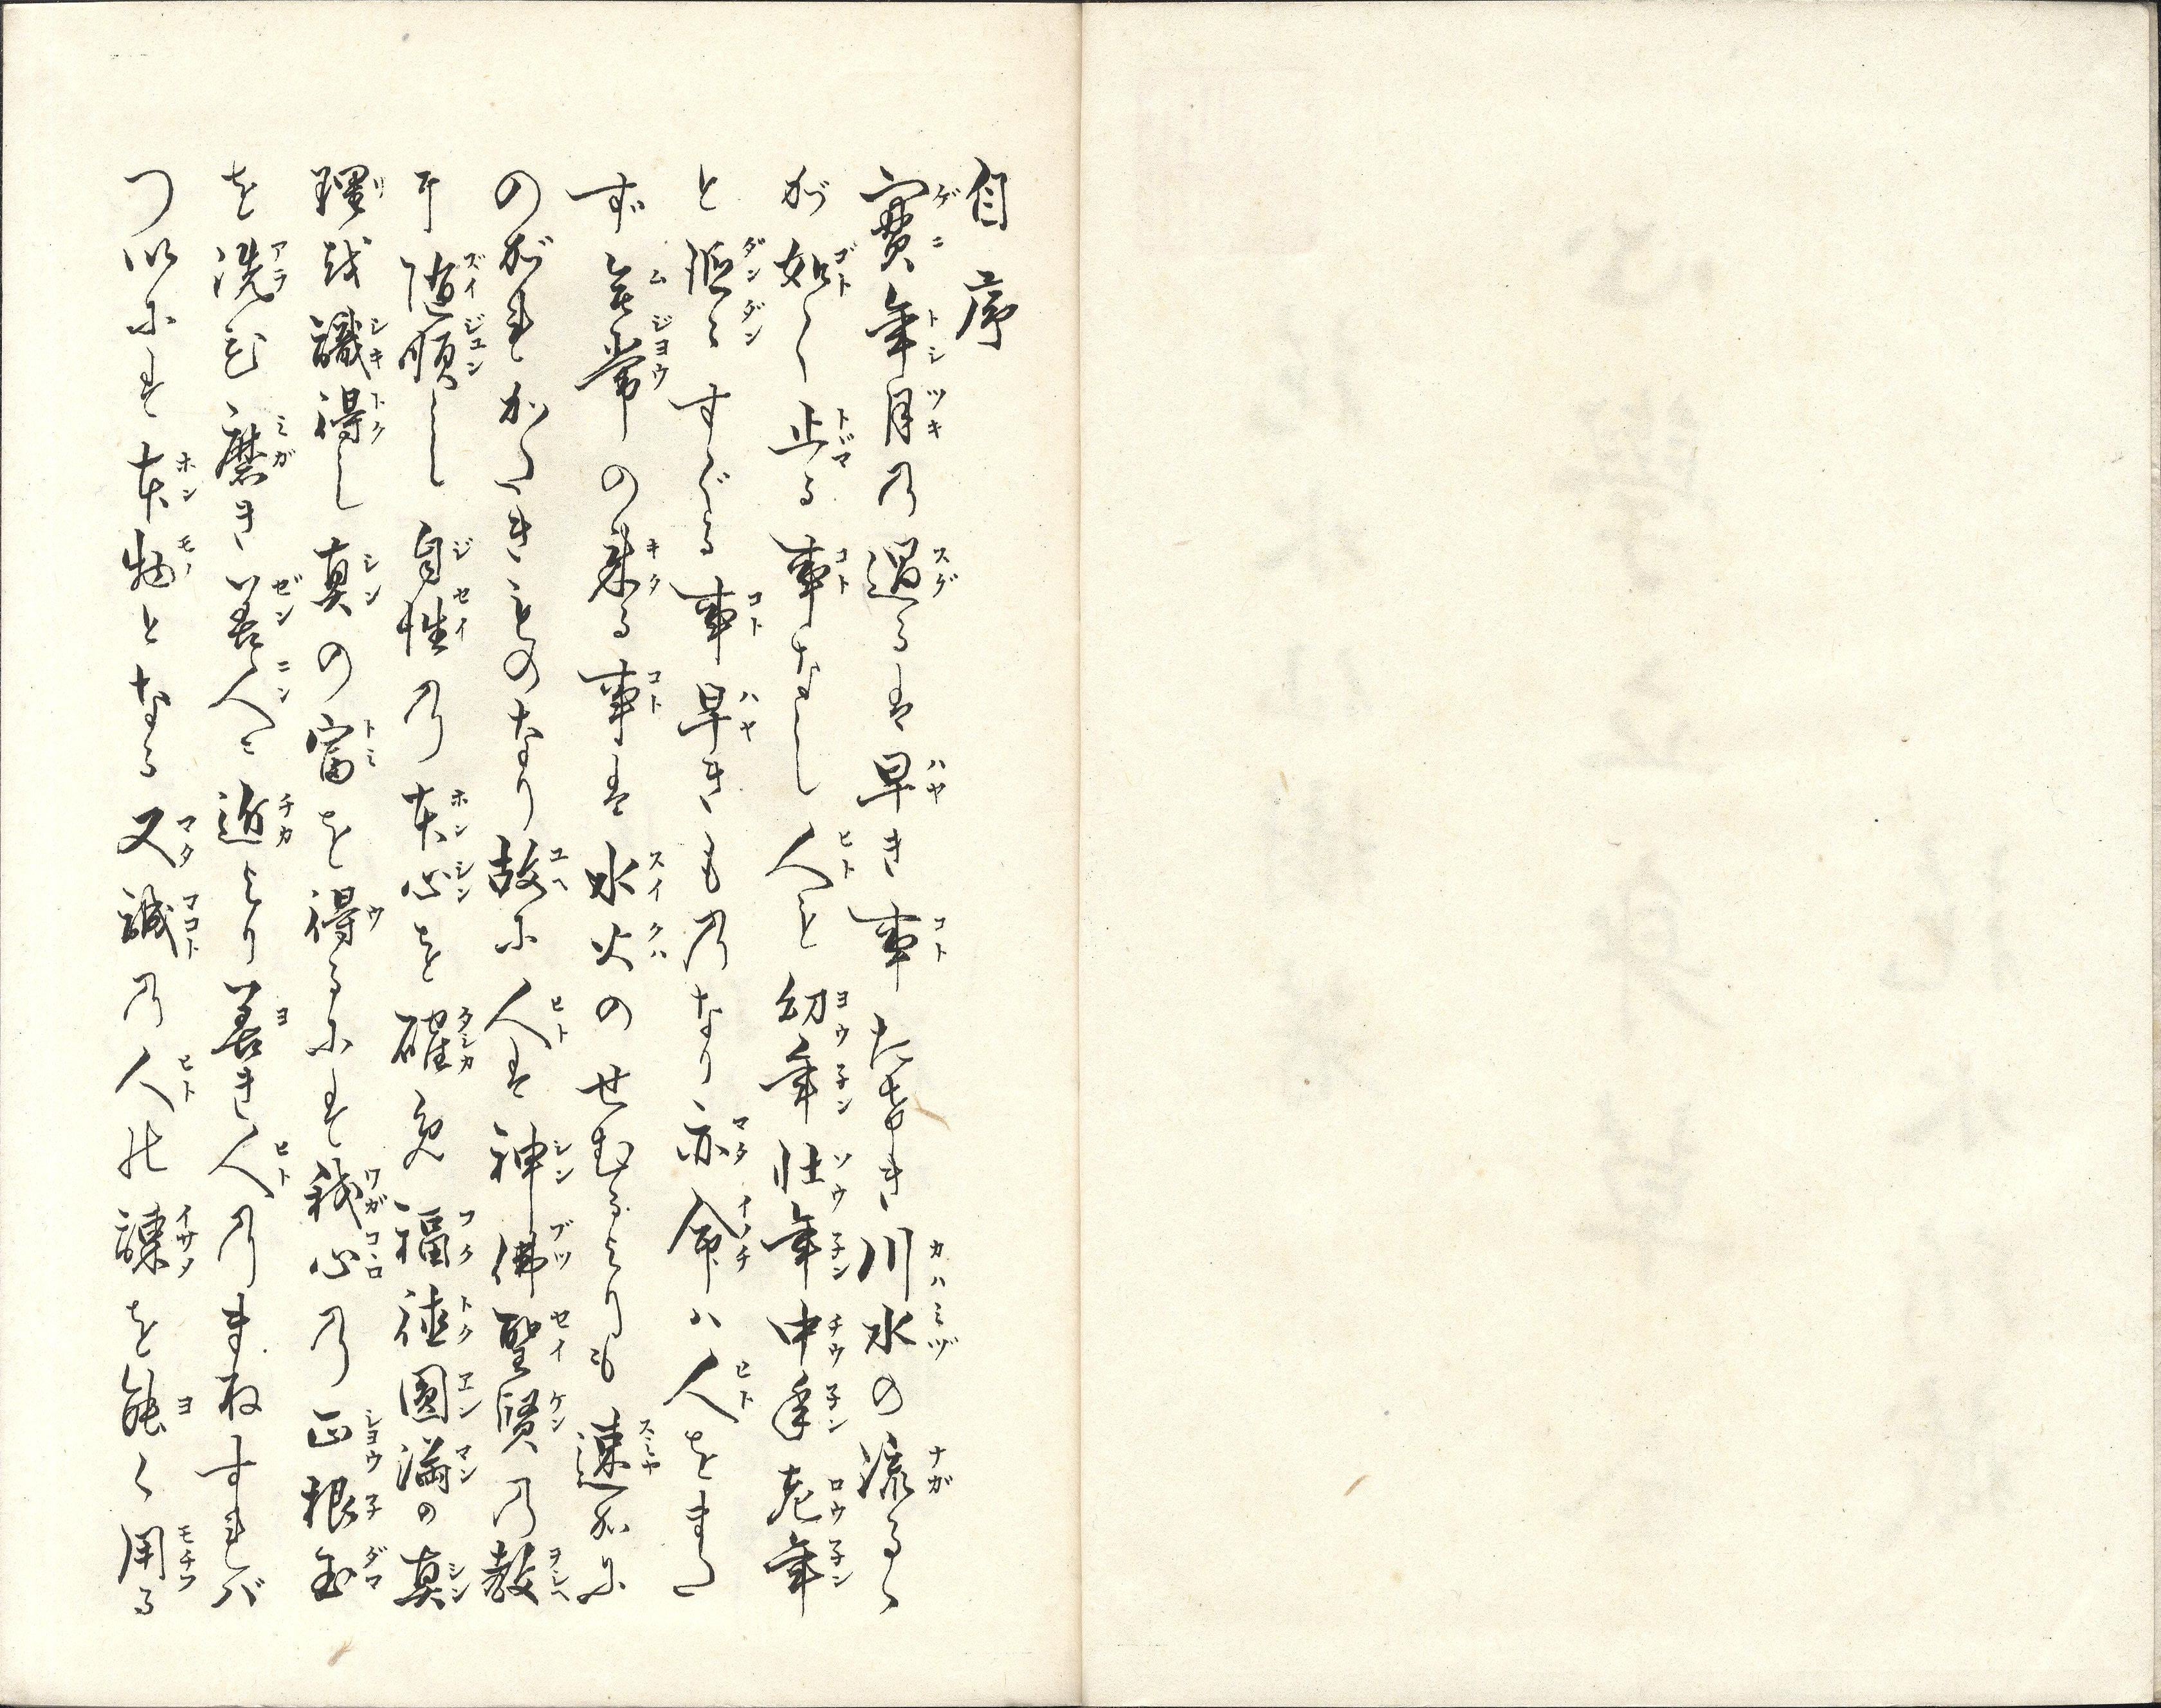 自序
實年月乃過るは早き事たとへき川水の流るゝ
が如く止る事なし人も幼年壮年中年老年
と段〻すぐる事早きも乃なり亦命ハ人をまた
ず無常の来る事は水火のせむるよりも速かに
のがれがたきものなり故に人は神佛聖賢乃教
に随順し自性乃本心を確め福徳圓満の真
理を識得し真の富を得るには我心乃正根玉
を洗ひ磨き善人に近より善き人乃まねすれバ
つひには本物となる又誠乃人の諌を能く用る